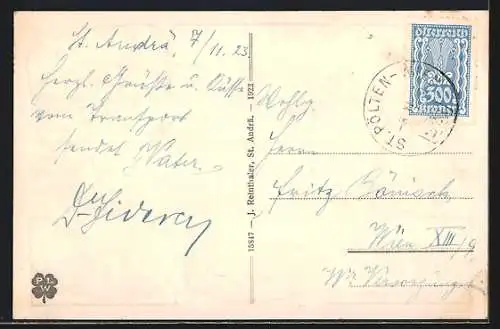 St. Andrä, 7/11.23
herzl. Grüße u. Küsse
vom Transport
sendet Vater.
Wohlg.
Herrn
Fritz Bönisch
Wien XIII/9
13847 – J. Reinthaler, St. Andrä. – 1923
Österreich
300
Kronen
ST. PÖLTEN
P. L. W.